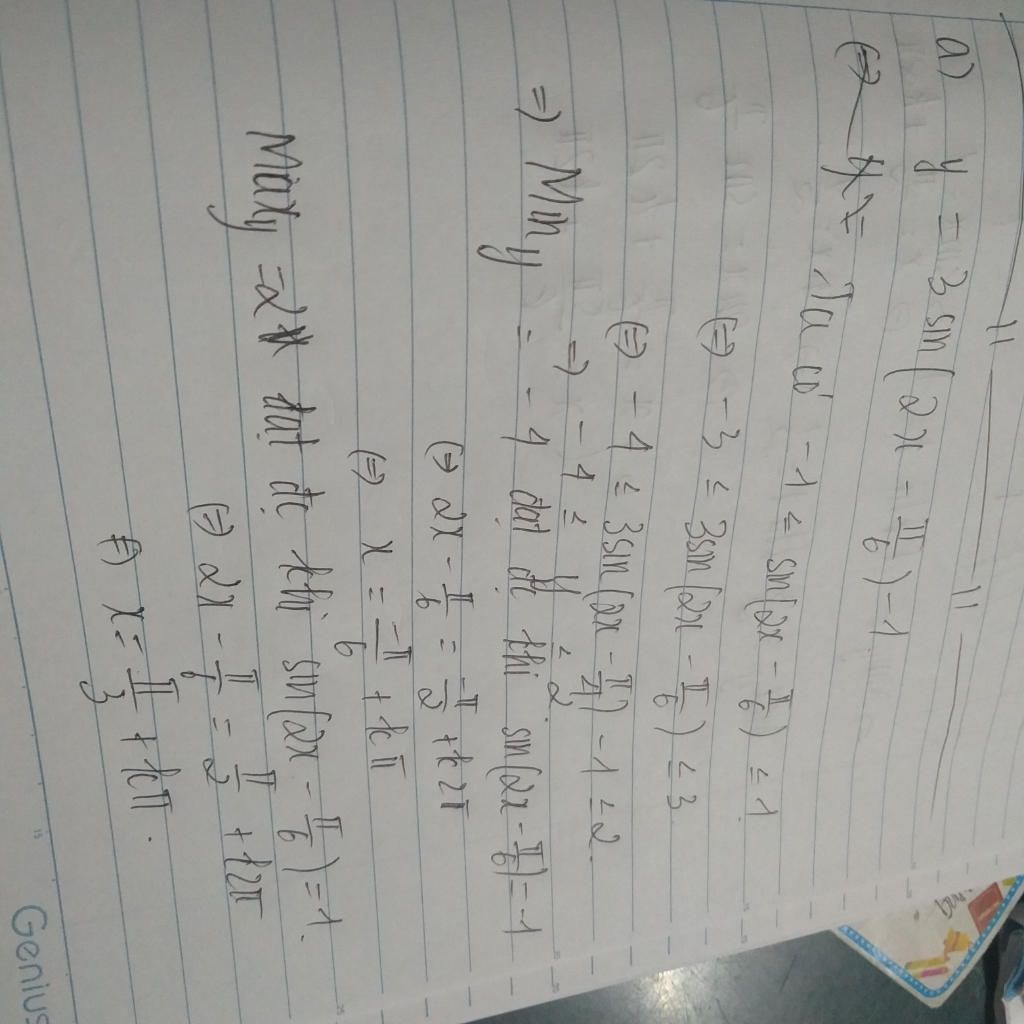 a) y = 3 sin(2x - π/6) - 1
Ta có -1 ≤ sin(2x - π/6) ≤ 1.
(=) -3 ≤ 3sin(2x - π/6) ≤ 3
(=) -4 ≤ 3sin(2x - π/6) - 1 ≤ 2.
=> -4 ≤ y ≤ 2
=> Min y = -4 đạt đc khi sin(2x - π/6) = -1
(=) 2x - π/6 = -π/2 + k2π
(=) x = -π/6 + kπ
Max y = 2 đạt đc khi sin(2x - π/6) = 1.
(=) 2x - π/6 = π/2 + k2π
(=) x = π/3 + kπ.
Genius